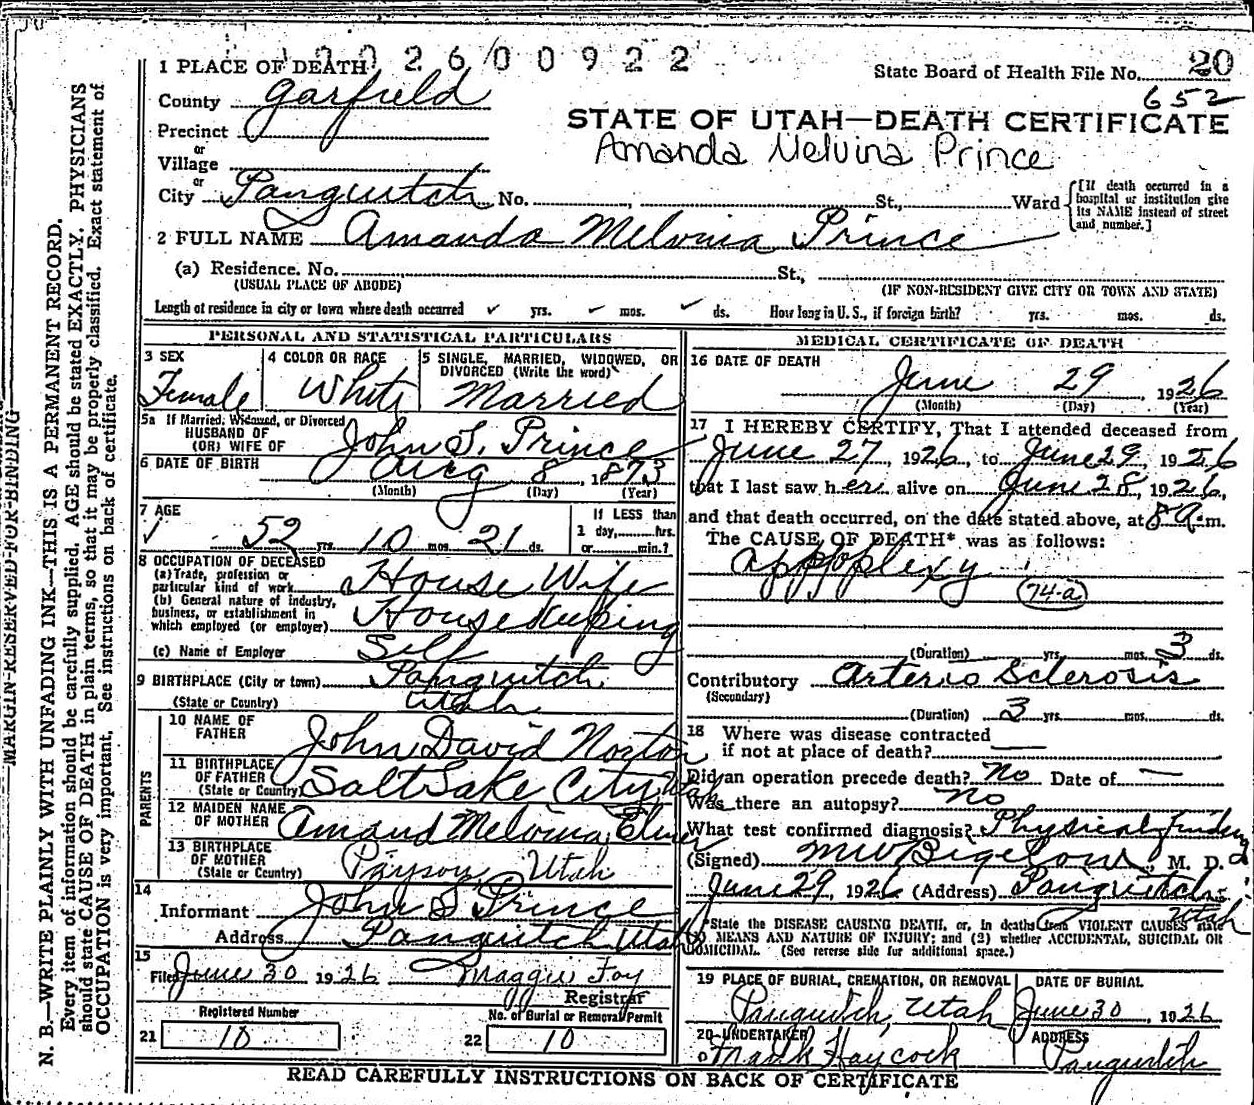 2026/00922
1 PLACE OF DEATH
State Board of Health File No. 20
652
County Garfield
STATE OF UTAH—DEATH CERTIFICATE
Precinct
Amanda Melvina Prince
or
Village
or
City Panguitch No. St., Ward
[If death occurred in a hospital or institution give its NAME instead of street and number.]
2 FULL NAME Amanda Melvina Prince
(a) Residence. No. St.,
(USUAL PLACE OF ABODE) (IF NON-RESIDENT GIVE CITY OR TOWN AND STATE)
Length of residence in city or town where death occurred ✓ yrs. ✓ mos. ✓ ds. How long in U. S., if foreign birth? yrs. mos. ds.
PERSONAL AND STATISTICAL PARTICULARS
3 SEX
Female
4 COLOR OR RACE
White
5 SINGLE, MARRIED, WIDOWED, OR DIVORCED (Write the word)
Married
5a If Married, Widowed, or Divorced
HUSBAND OF
(OR) WIFE OF John S. Prince
6 DATE OF BIRTH Aug 8, 1873
(Month) (Day) (Year)
7 AGE
✓ 52 yrs. 10 mos. 21 ds.
If LESS than
1 day, hrs.
or min.?
8 OCCUPATION OF DECEASED
(a) Trade, profession or
particular kind of work House Wife
(b) General nature of industry,
business, or establishment in
which employed (or employer) House Keeping
(c) Name of Employer Self
9 BIRTHPLACE (City or town) Panguitch
(State or Country) Utah
PARENTS
10 NAME OF
FATHER John David Norton
11 BIRTHPLACE
OF FATHER
(State or Country) Salt Lake City Utah
12 MAIDEN NAME
OF MOTHER Amand Melvina Elmer
13 BIRTHPLACE
OF MOTHER
(State or Country) Payson, Utah
14
Informant John S Prince
Address Panguitch Utah
15
Filed June 30 1926 Maggie Foy
Registrar
Registered Number
21 10
No. of Burial or Removal Permit
22 10
MEDICAL CERTIFICATE OF DEATH
16 DATE OF DEATH
June 29 1926
(Month) (Day) (Year)
17 I HEREBY CERTIFY, That I attended deceased from
June 27, 1926, to June 29 1926
that I last saw her alive on June 28, 1926,
and that death occurred, on the date stated above, at 8 A. m.
The CAUSE OF DEATH* was as follows:
appoplexy
74-a
(Duration) yrs. mos. 3 ds.
Contributory Arterio Sclerosis
(Secondary)
(Duration) 3 yrs. mos. ds.
18 Where was disease contracted
if not at place of death?
Did an operation precede death? No Date of —
Was there an autopsy? No
What test confirmed diagnosis? Physical findings
(Signed) M W Bigelow, M. D.
June 29, 1926 (Address) Panguitch
Utah
*State the DISEASE CAUSING DEATH, or, in deaths from VIOLENT CAUSES state
(1) MEANS AND NATURE OF INJURY; and (2) whether ACCIDENTAL, SUICIDAL OR
HOMICIDAL. (See reverse side for additional space.)
19 PLACE OF BURIAL, CREMATION, OR REMOVAL
Panguitch, Utah
DATE OF BURIAL
June 30, 1926
20 UNDERTAKER
Frank Haycock
ADDRESS
Panguitch
READ CAREFULLY INSTRUCTIONS ON BACK OF CERTIFICATE
MARGIN RESERVED FOR BINDING
N. B.—WRITE PLAINLY WITH UNFADING INK—THIS IS A PERMANENT RECORD.
Every item of information should be carefully supplied. AGE should be stated EXACTLY. PHYSICIANS
should state CAUSE OF DEATH in plain terms, so that it may be properly classified. Exact statement of
OCCUPATION is very important. See instructions on back of certificate.